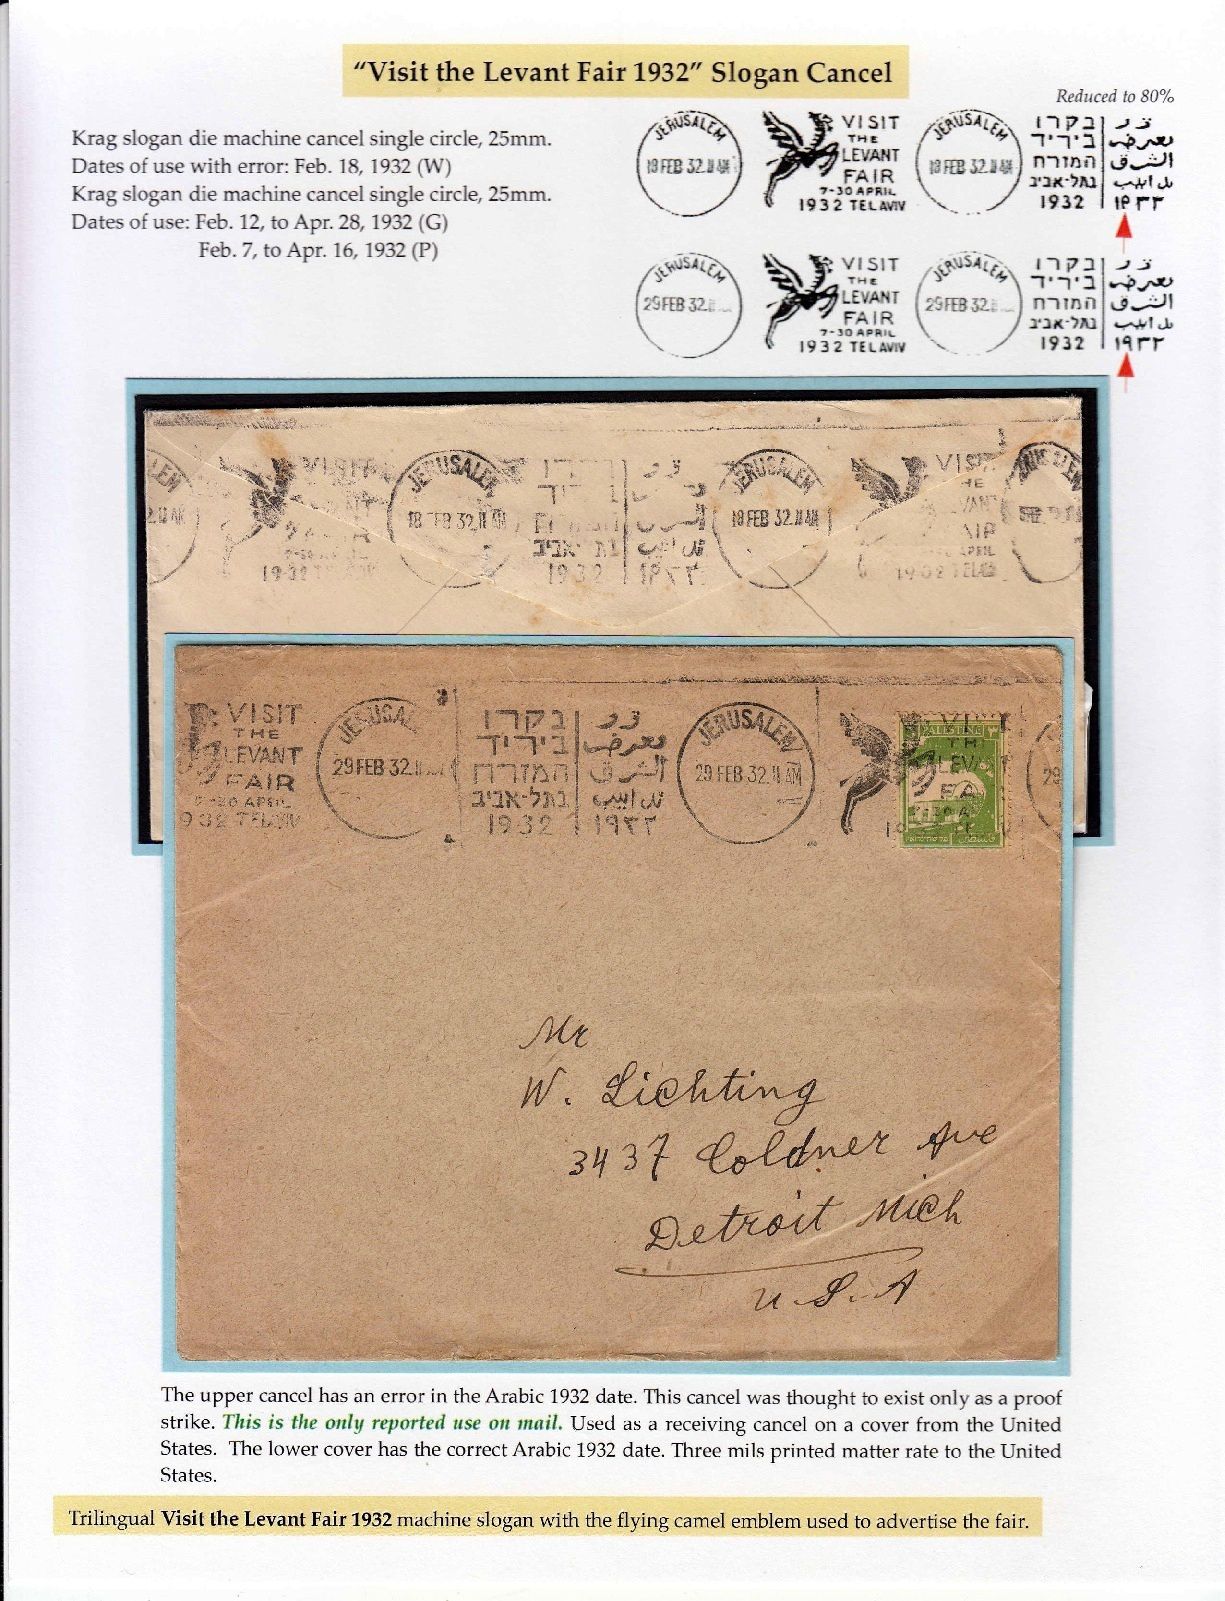 “Visit the Levant Fair 1932” Slogan Cancel
Reduced to 80%
Krag slogan die machine cancel single circle, 25mm.
Dates of use with error: Feb. 18, 1932 (W)
Krag slogan die machine cancel single circle, 25mm.
Dates of use: Feb. 12, to Apr. 28, 1932 (G)
Feb. 7, to Apr. 16, 1932 (P)
JERUSALEM
18 FEB 32.11 AM
VISIT
THE
LEVANT
FAIR
7-30 APRIL
1932 TEL AVIV
JERUSALEM
18 FEB 32.11 AM
בקרו
ביריד
המזרח
בתל-אביב
1932
زوروا
معرض
الشرق
تل ابيب
١٩٣٣
JERUSALEM
29 FEB 32.
VISIT
THE
LEVANT
FAIR
7-30 APRIL
1932 TEL AVIV
JERUSALEM
29 FEB 32.
בקרו
ביריד
המזרח
בתל-אביב
1932
معرض
الشرق
تل ابيب
١٩٣٢
VISIT
1932
JERUSALEM
18 FEB 32.11 AM
בקרו
ביריד
המזרח
בתל-אביב
1932
١٩٣٣
JERUSALEM
18 FEB 32.11 AM
VISIT
THE
LEVANT
FAIR
APRIL
TEL AVIV
VISIT
THE
LEVANT
FAIR
7-30 APRIL
932 TEL AVIV
JERUSALEM
29 FEB 32.11 AM
בקרו
ביריד
המזרח
בתל-אביב
1932
معرض
الشرق
تل ابيب
١٩٣٢
JERUSALEM
29 FEB 32.11 AM
VISIT
THE
LEVANT
FA
PALESTINE
29
Mr
W. Lichting
3437 Coldner Ave
Detroit Mich
U.S.A
The upper cancel has an error in the Arabic 1932 date. This cancel was thought to exist only as a proof
strike. This is the only reported use on mail. Used as a receiving cancel on a cover from the United
States. The lower cover has the correct Arabic 1932 date. Three mils printed matter rate to the United
States.
Trilingual Visit the Levant Fair 1932 machine slogan with the flying camel emblem used to advertise the fair.